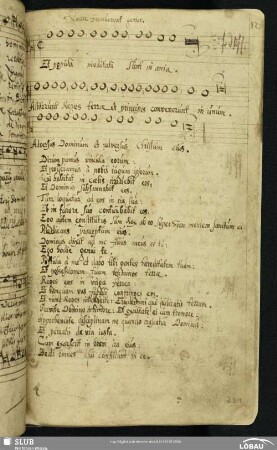 Quare fremuerunt gentes.
Et populi meditati sunt in ania.
Astiterunt Reges terræ et principes convenerunt in unum.
Adversus Dominum et adversus Cristum eius.
Dirumpamus vincula eorum
Et proijciamus à nobis iugum ipsorum.
Qui habitat in cœlis irridebit eos,
Et Dominus subsannabit eos,
Tunc loquetur ad eos in ira sua
Et in furore suo conturbabit eos.
Ego autem constitutus sum Rex ab eo super Sion montem sanctum eius
Prædicans præceptum eius.
Dominus dixit ad me filius meus es tu
Ego hodie genui te.
Postula à me et dabo tibi gentes hæreditatem tuam
Et possessionem tuam terminos terræ.
Reges eos in virga ferrea
Et tanquam vas figuli confringes eos.
Et nunc Reges intelligite: Erudimini qui iudicatis terram.
Servite Domino in timore: Et exultate ei cum tremore
Apprehendite disciplinam ne quando irascatur Dominus
Et pereatis de via iusta.
Cum exarserit in brevi ira eius
Beati omnes qui confidunt in eo.
SLUB
Wir führen Wissen.
LÖBAU